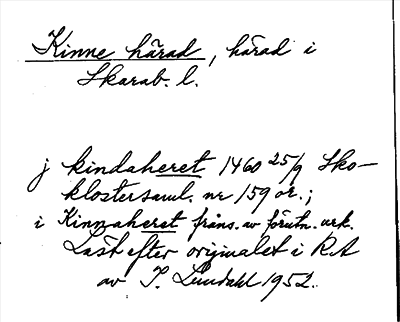 Kinne härad, härad i
Skarab. l.
j kindaheret 1460 25/9 Sko-
klostersaml. nr 159 or.;
i Kinnaheret från s. av förutn. urk.
Läst efter originalet i RA
av I. Lundahl 1952.